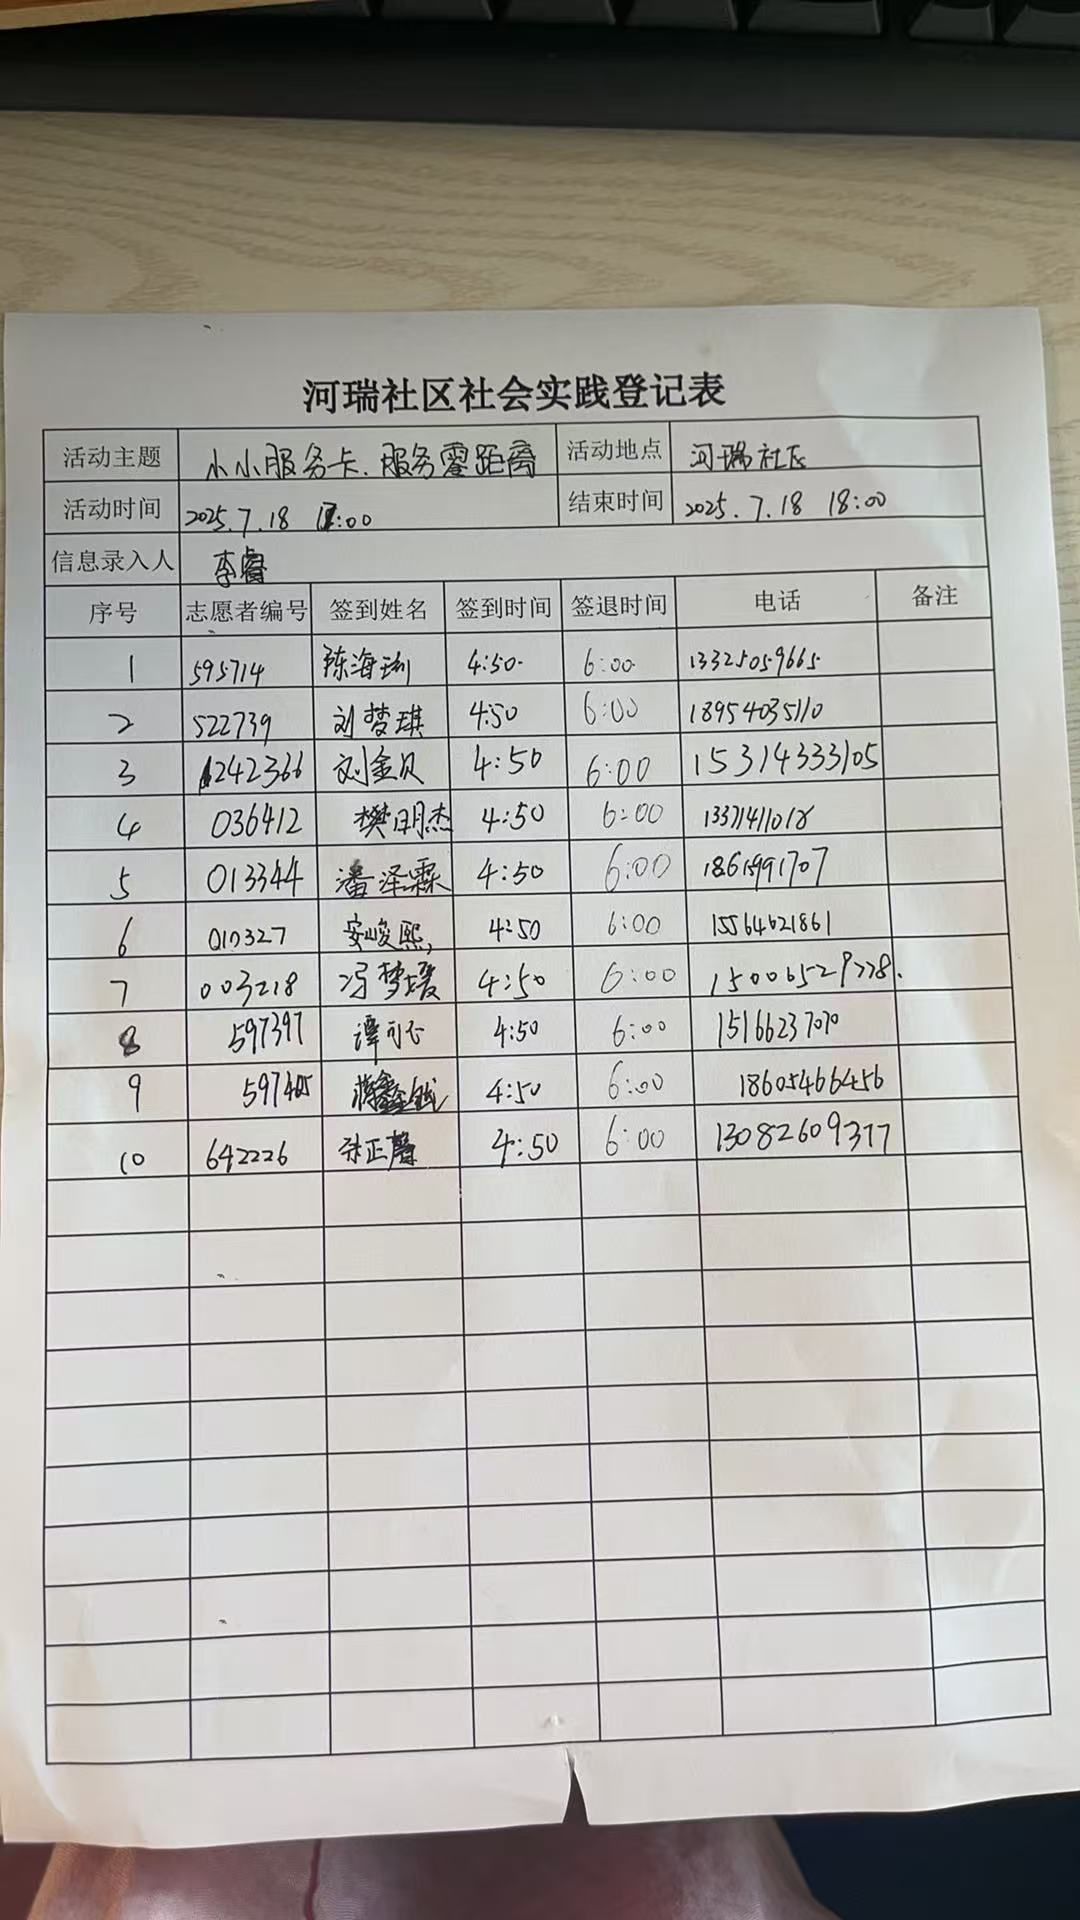 河瑞社区社会实践登记表
活动主题 小小服务卡.服务零距离 活动地点 河瑞社区
活动时间 2025.7.18 17:00 结束时间 2025.7.18 18:00
信息录入人 李睿
序号 志愿者编号 签到姓名 签到时间 签退时间 电话 备注
1 595714 陈海 4:50 6:00 13325059665
2 522739 刘梦琪 4:50 6:00 18954035110
3 242366 刘金贝 4:50 6:00 15314333105
4 036412 樊明杰 4:50 6:00 13371411018
5 013344 潘泽霖 4:50 6:00
6 010327 安峻熙 4:50 6:00 15564621861
7 003218 冯梦媛 4:50 6:00 15006529778
8 597397 谭 4:50 6:00 15166237070
9 597405 4:50 6:00 18605466456
10 642226 张正 4:50 6:00 13082609377